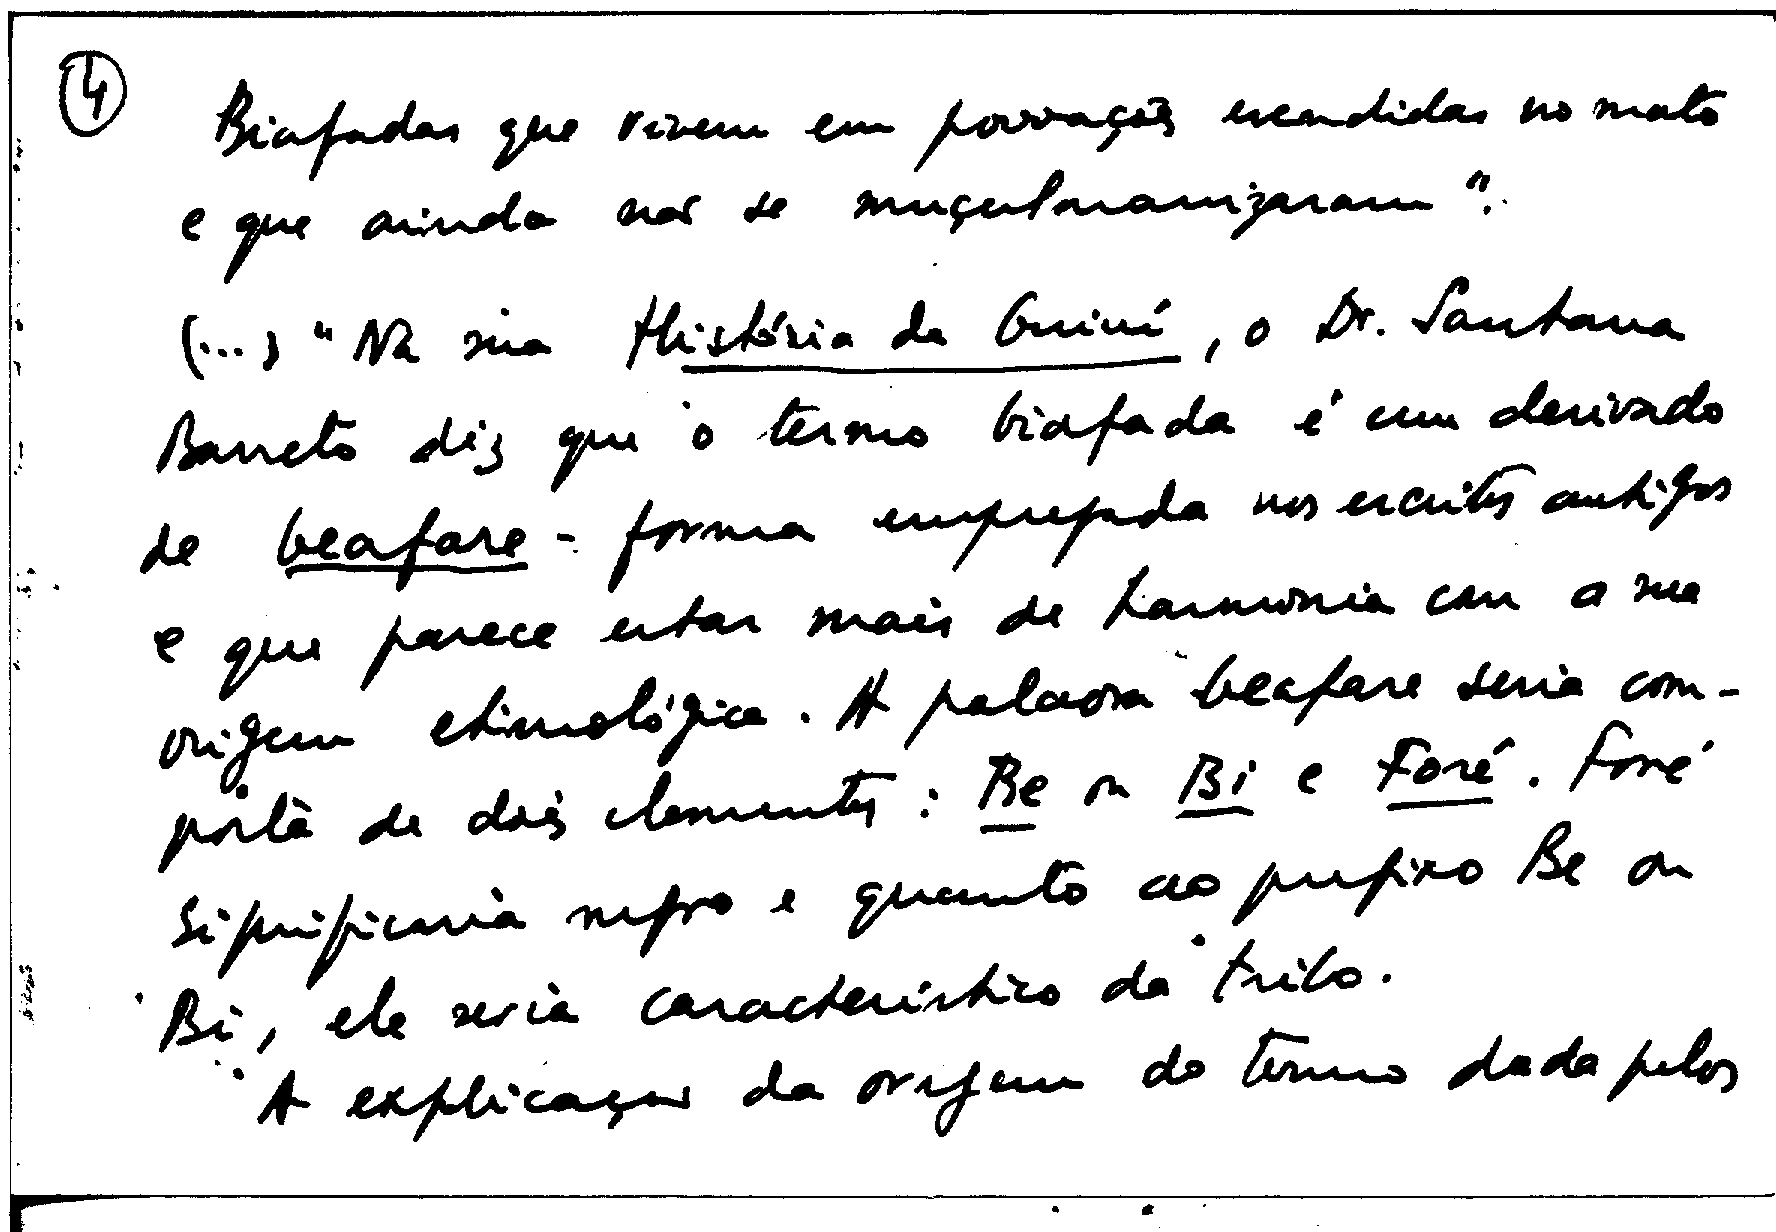 4
Biafadas que vivem em povoações escondidas no mato
e que ainda não se muçulmanizaram".
(...) "Na sua História da Guiné, o Dr. Santana
Barreto diz que o termo biafada é um derivado
de beafare - forma empregada nos escritos antigos
e que parece estar mais de harmonia com a sua
origem etimológica. A palavra beafare seria com-
posta de dois elementos: Be ou Bi e Faré. Faré
significaria negro e quanto ao prefixo Be ou
Bi, ele seria característico da tribo.
A explicação da origem do termo dada pelos